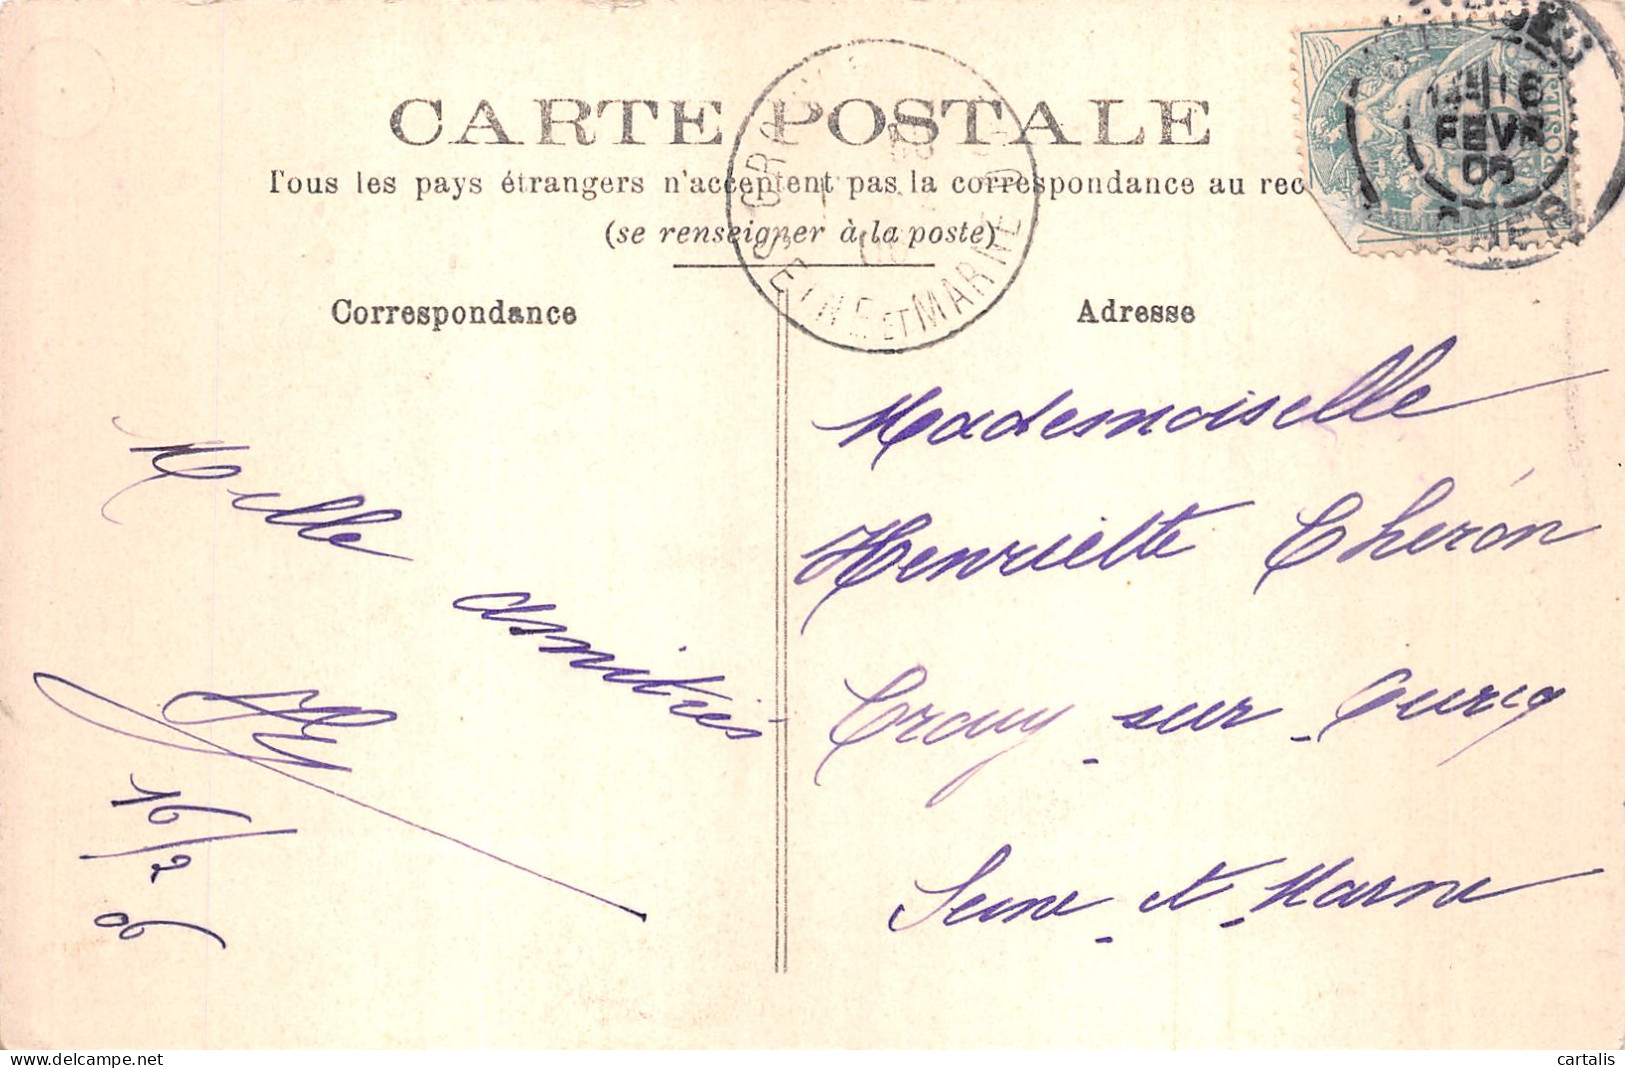 CARTE POSTALE
Tous les pays étrangers n'acceptent pas la correspondance au rec
(se renseigner à la poste)
SEINE ET MARNE
16
FEVR
06
CHER
POSTES
Correspondance
Adresse
Mille
amitiés
16/2
06
Mademoiselle
Henriette Chéron
Crouy-sur-Ourcq
Seine-et-Marne
www.delcampe.net
cartalis